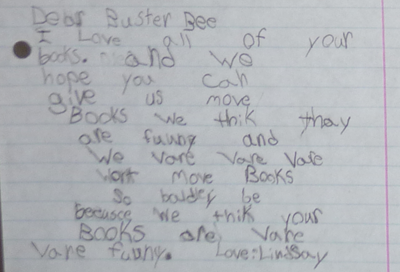 Dear Buster Bee
I Love all of your
books. and we
hope you can
give us move
Books we thik thay
are fuung and
We vare vare vare
wort move Books
So baddey be
becusce we thik your
BOOKS are vare
vare fuung. Love: Lindsay